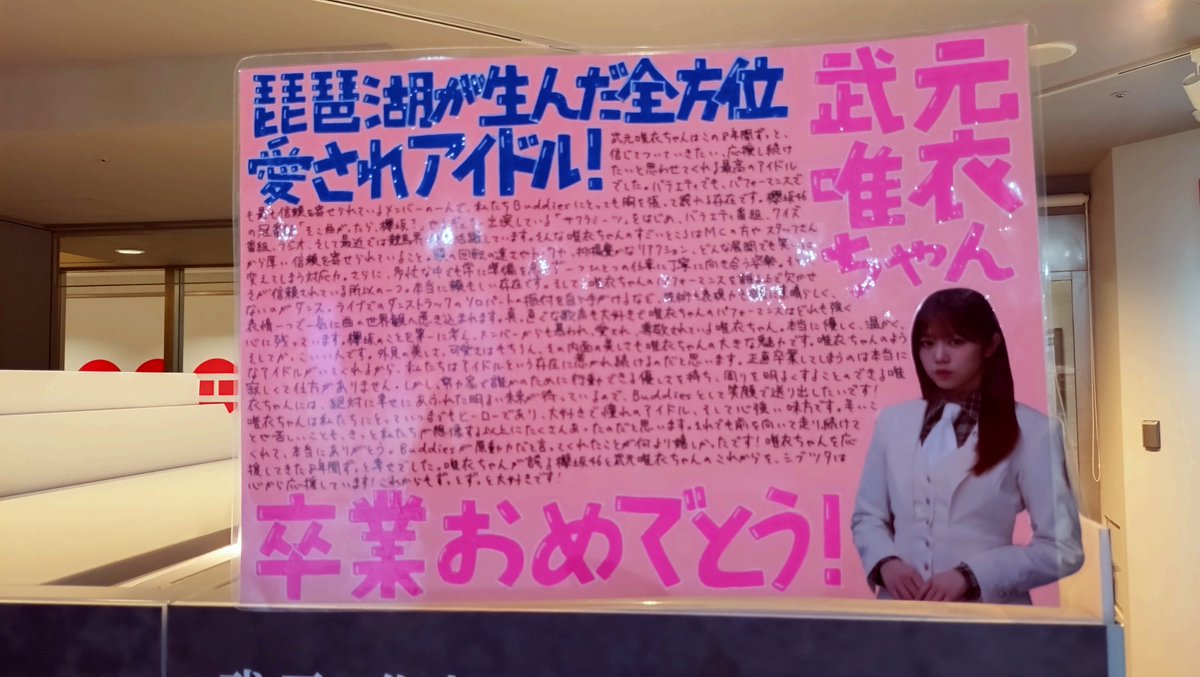 琵琶湖が生んだ全方位
愛されアイドル!
武元
唯衣
ちゃん
武元唯衣ちゃんはこの8年間ずっと、
信じてついていきたい、応援し続け
たいと思わせてくれる最高のアイドル
でした。バラエティでも、パフォーマンスで
も最も信頼を寄せられているメンバーの一人で、私たちBuddiesにとっても胸を張って誇れる存在です。櫻坂46
の冠番組「そこ曲がったら、櫻坂?」や出演している「サクラミーツ」をはじめ、バラエティ番組、クイズ
番組、ラジオ、そして最近では競馬界でも活躍しています。そんな唯衣ちゃんのすごいところはMCの方やスタッフさん
から厚い信頼を寄せられていること。頭の回転の速さやトーク力、抑揚豊かなリアクション、どんな展開でも笑いに
変えてしまう対応力。さらに、多忙な中でも常に準備を
一つひとつの仕事に丁寧に向き合う姿勢
が信頼されている所以の一つ。本当に頼もしい存在です。そして、唯衣ちゃんのパフォーマンスを語る上で欠かせ
ないのがダンス。ライブでのダンストラックのソロパートの振付を自ら手がけるなど、
表情一つで一気に曲の世界観へ惹き込まれます。真っ直ぐな歌声も大好きで唯衣ちゃんのパフォーマンスはどれも強く
心に残っています。櫻坂のことを第一に考え、メンバーからも慕われ、愛され、尊敬されている唯衣ちゃん。本当に優しく、温かく、
そしてかっこいい人です。外見の美しさ、可愛さはもちろん、その内面の美しさも唯衣ちゃんの大きな魅力です。唯衣ちゃんのよう
なアイドルがいてくれるから、私たちはアイドルという存在に惹かれ続けるのだと思います。正直卒業してしまうのは本当に
寂しくて仕方がありません。しかし、努力家で誰かのために行動できる優しさを持ち、周りを明るくすることのできる唯
衣ちゃんには、絶対に幸せにあふれた明るい未来が待っているので、Buddiesとして笑顔で送り出したいです!
唯衣ちゃんは私たちにとっていつまでもヒーローであり、大好きで憧れのアイドル、そして心強い味方です。辛いこ
とや苦しいことも、きっと私たちが想像する以上にたくさんあったのだと思います。それでも前を向いて走り続けて
くれて、本当にありがとう。Buddiesが原動力だと言ってくれたことが何より嬉しかったです!唯衣ちゃんを応
援してきた8年間ずっと幸せでした。唯衣ちゃんが誇る櫻坂46と武元唯衣ちゃんのこれからを、シブツタは
心から応援しています!これからもずっとずっと大好きです!
卒業おめでとう!